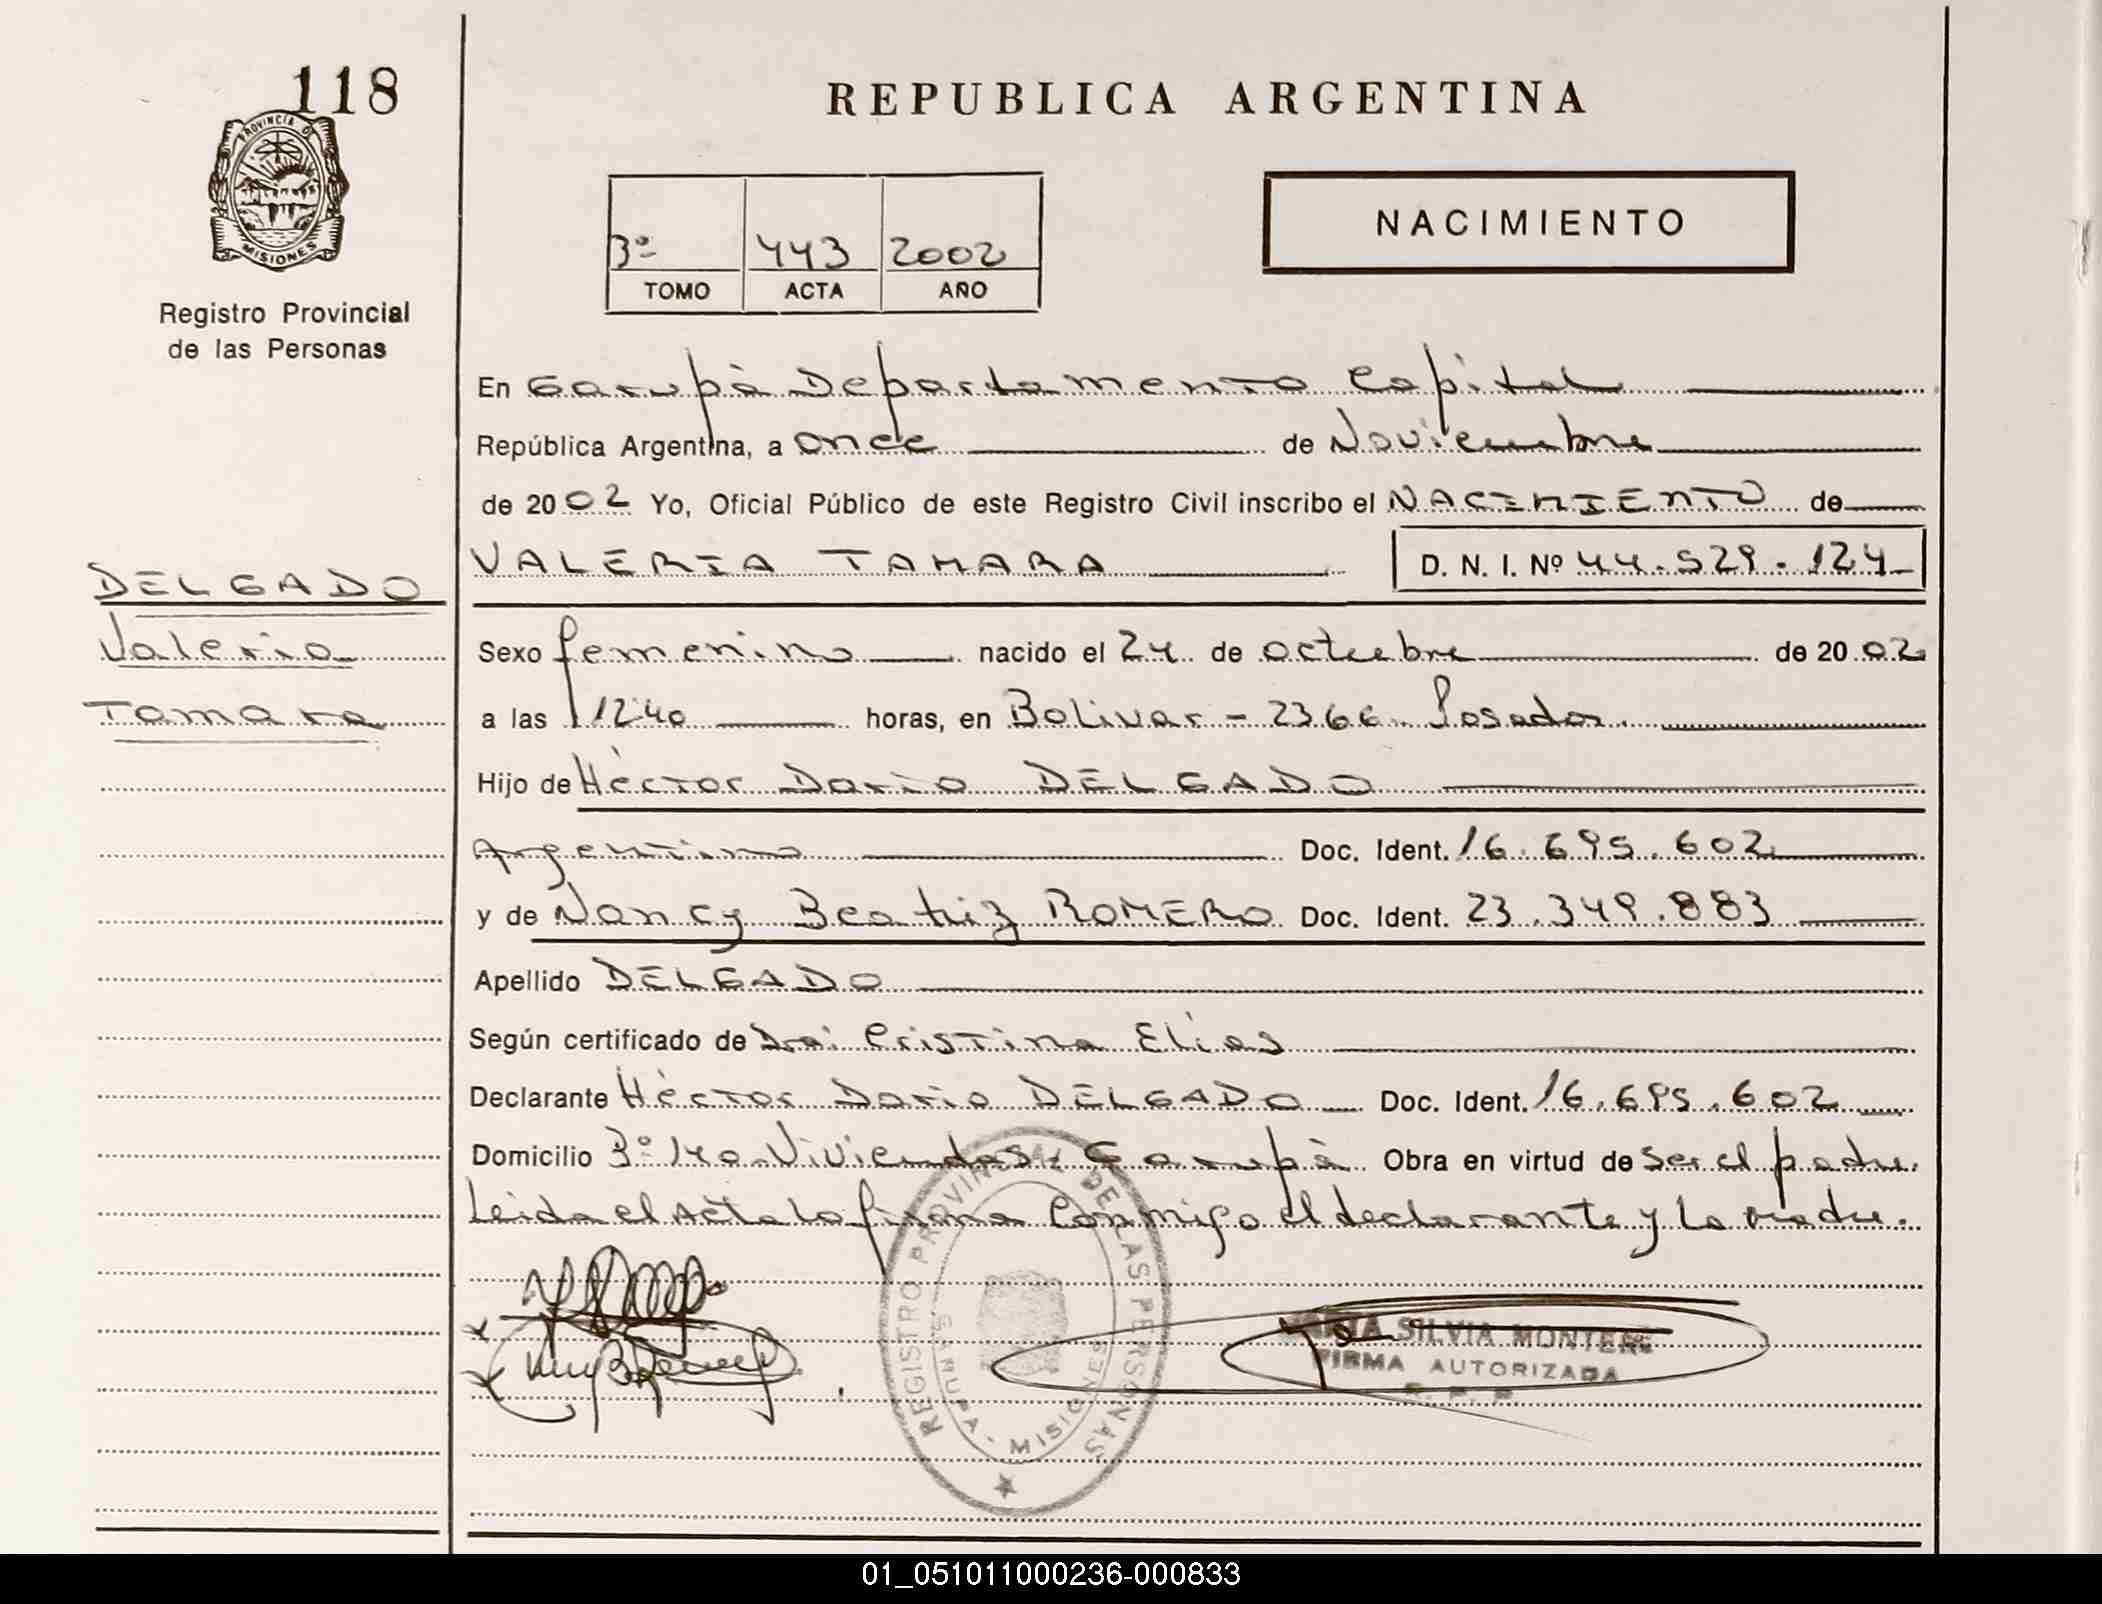 118
PROVINCIA D
MISIONES
Registro Provincial
de las Personas
REPUBLICA ARGENTINA
3º 443 2002
TOMO ACTA AÑO
NACIMIENTO
En Garupà Departamento Capital
República Argentina, a once de Noviembre
de 2002 Yo, Oficial Público de este Registro Civil inscribo el NACIMIENTO de
VALERIA TAMARA D. N. I. Nº 44.529.124
DELGADO
Valeria
Tamara
Sexo femenino nacido el 24 de octubre de 2002
a las 1240 horas, en Bolivar - 2366 Posadas.
Hijo de Hèctor Dario DELGADO
Argentino Doc. Ident. 16.695.602
y de Nancy Beatriz ROMERO Doc. Ident. 23.349.883
Apellido DELGADO
Según certificado de Dra: Cristina Elias
Declarante Hèctor Dario DELGADO Doc. Ident. 16.695.602
Domicilio 3º 140 Viviendas. Garupà Obra en virtud de ser el padre.
Leida el Acta la firma conmigo el declarante y la madre.
REGISTRO PROVINCIAL DE LAS PERSONAS
MISIONES
SILVIA MONTERO
FIRMA AUTORIZADA
R. P. P.
01_051011000236-000833